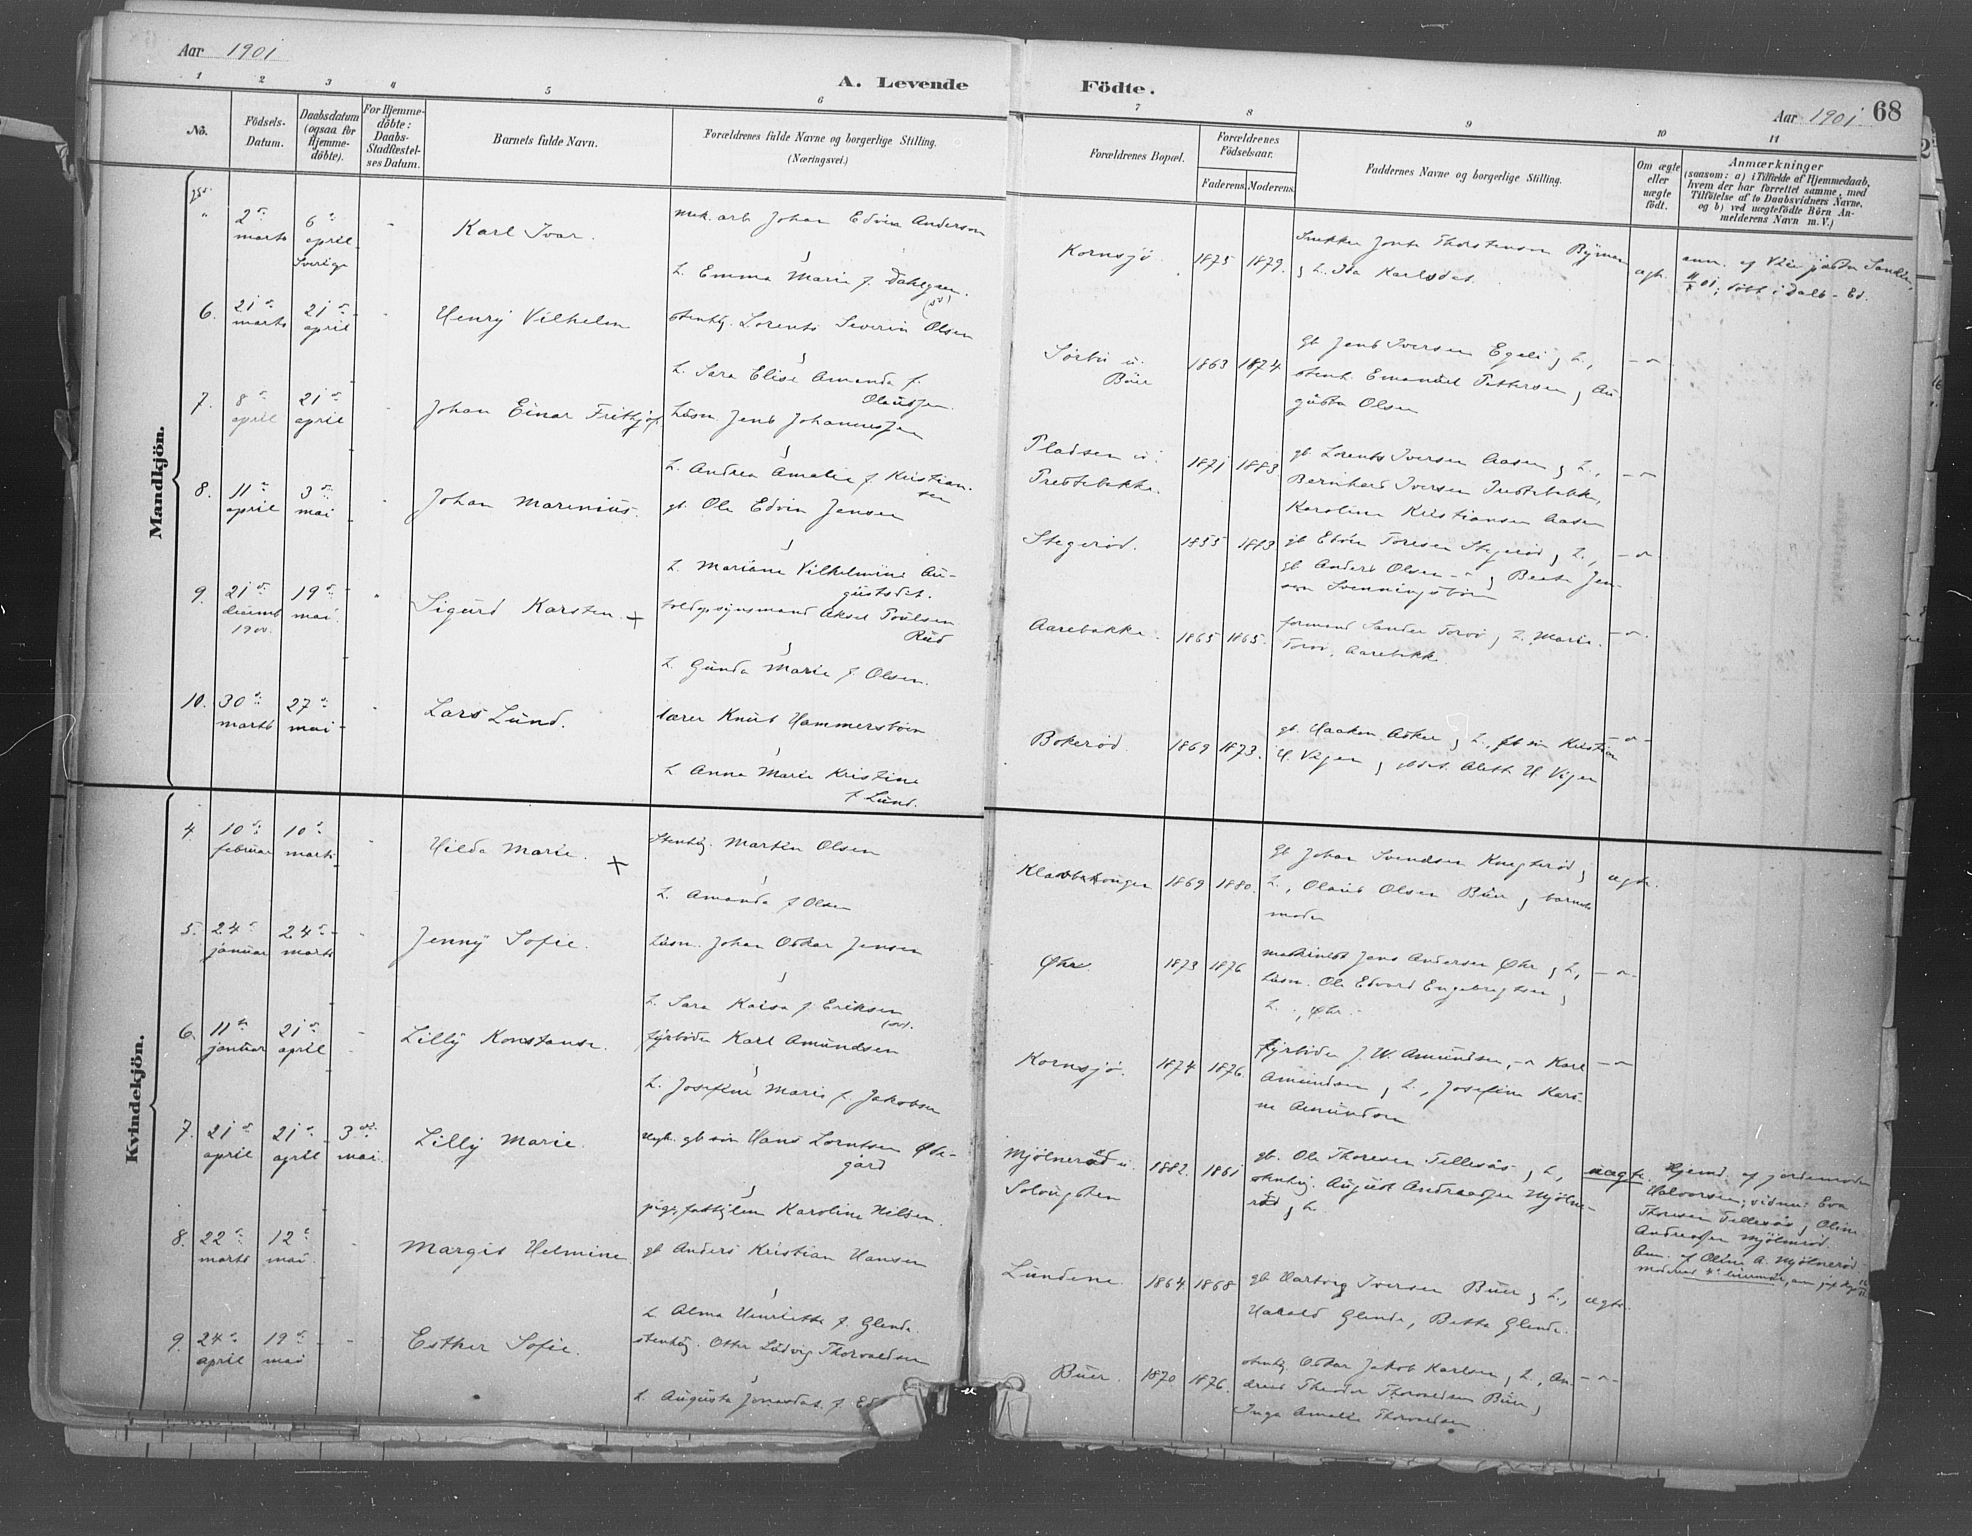 Aar 1901
A. Levende Födte.
Aar 1901 68
1 2 3 4 5 6 7 8 9 10 11
No.
Födsels-Datum.
Daabsdatum (ogsaa for Hjemme-döbte).
For Hjemme-döbte: Daabs-Stadfæstel-ses Datum.
Barnets fulde Navn.
Forældrenes fulde Navne og borgerlige Stilling.
(Næringsvei.)
Forældrenes Bopæl.
Forældrenes Födselsaar.
Faderens. Moderens.
Faddernes Navne og borgerlige Stilling.
Om ægte eller uægte födt.
Anmærkninger
(saasom: a) i Tilfælde af Hjemmedaab,
hvem der har forrettet samme, med
Tilföielse af to Daabsvidners Navne.
og b) ved uægtefödte Börn An-
melderens Navn m. V.)
Mandkjön.
2 marts
6 april Sverige
Karl Ivar.
mek. arb Johan Edvin Anderson
h. Emma Marie f. Dahlgren.
Kornsjö. 1875 1879.
Snekker Thorstenson
h. Ida Karlsdat. ægt.
6. 21 marts 21 april
Henry Vilhelm
stenhg. Lorents Severin Olsen
h. Sara Elise Amanda f. Olaussen.
Sörbö u. Büer 1863 1874
gb Jens Iversen Egeli h.,
stenh. Emanuel Pettersen, Au-
gusta Olsen
7. 8 april 21 april
Johan Einar Frithjof
Lüsm. Jens Johannessen
h. Andrea Amalie f Kristian-
sen
Pladsen u. Prestebakke. 1871 1883
gb. Lorents Iversen Aasen h.,
Bernhard Iversen Prestebakke,
Karoline Kristiansen Aasen
8. 11 april 3 mai
Johan Marenius.
gb. Ole Edvin Jensen
h. Mariane Vilhelmine Au-
gustsdat.
Stegeröd. 1855 1883
gb Edvin Toresen Stegeröd h.,
gb Anders Olsen Beate Jen-
sen
9. 21 decemb 1900. 19 mai.
Sigurd Karsten. +
toldopsynsmand Aksel Poulsen
Rüd
h. Gunda Marie f Olsen.
Aarebakke. 1865 1865.
formand Sander h. Marie
Aarebakke.
10. 30 marts 27 mai
Lars Lund.
lærer Knut Hammerstöin
h Anna Marie Kristine
f Lund.
Bokeröd. 1869 1873.
gb. Haaken Asker h., gb sön Kristian
H. Vigen gbdat. Aleth H Vigen
Kvindekjön.
4 10 februar 10 marts
Hilda Marie. +
Stenhg. Martin Olsen
h. Amanda f Olsen
1869 1880.
gb Johan Svendsen
h., Olaus Olsen Büer, barnets
moder
ægte.
5. 24 januar 24 marts
Jenny Sofie.
Lüsm. Johan Oskar Jensen
h. Sara Kaisa f Eriksen
Öhr. 1873 1876
maskinist Jens Andersen Öhr h.,
Lüsm. Ole Edvard Engebregtsen
h., Öhr.
6. 11 januar 21 april
Lilly Konstanse.
fyrböder Karl Amundsen
h. Josefine Marie f. Jakobsen
Kornsjö. 1874 1876.
fyrböder J. W. Amundsen, Karl
Amundsen h., Josefine Kars-
ne Amundsen
7. 21 april 21 april 3 mai
Lilly Marie.
ugk. gb sön Hans Lorntsen Öde-
gård
pige, fattiglem Karoline Nilsen.
Mjölneröd u. Solougsten 1882. 1861
gb. Ole Thoresen Tellesås h.,
stenhg. August Andreassen Mjölne-
röd h.
uægte.
Hjemd. af jordemoder
Halvorsen; vidner: Eva
Thoresen Tellesås Oline
Andreassen Mjölneröd.
Anm. af Oline A. Mjölneröd.
8. 22 marts 12 mai.
Margit Helmine
gb Anders Kristian Hansen
h. Alma Henriette f. Glende.
Lundene. 1864 1868
gb. Hartvig Iversen Büer h.,
Harald Glende, Betta Glende.
ægte.
9. 24 april 19 mai
Esther Sofie.
stenhg. Otter Ludvig Thorvaldsen
h. Augusta Jonasdat. f
Büer. 1870 1876.
stenhg. Oskar Jakob Karlsen h., An-
dreas Theodor Thorvaldsen Büer
Inga Amalie Thorvaldsen